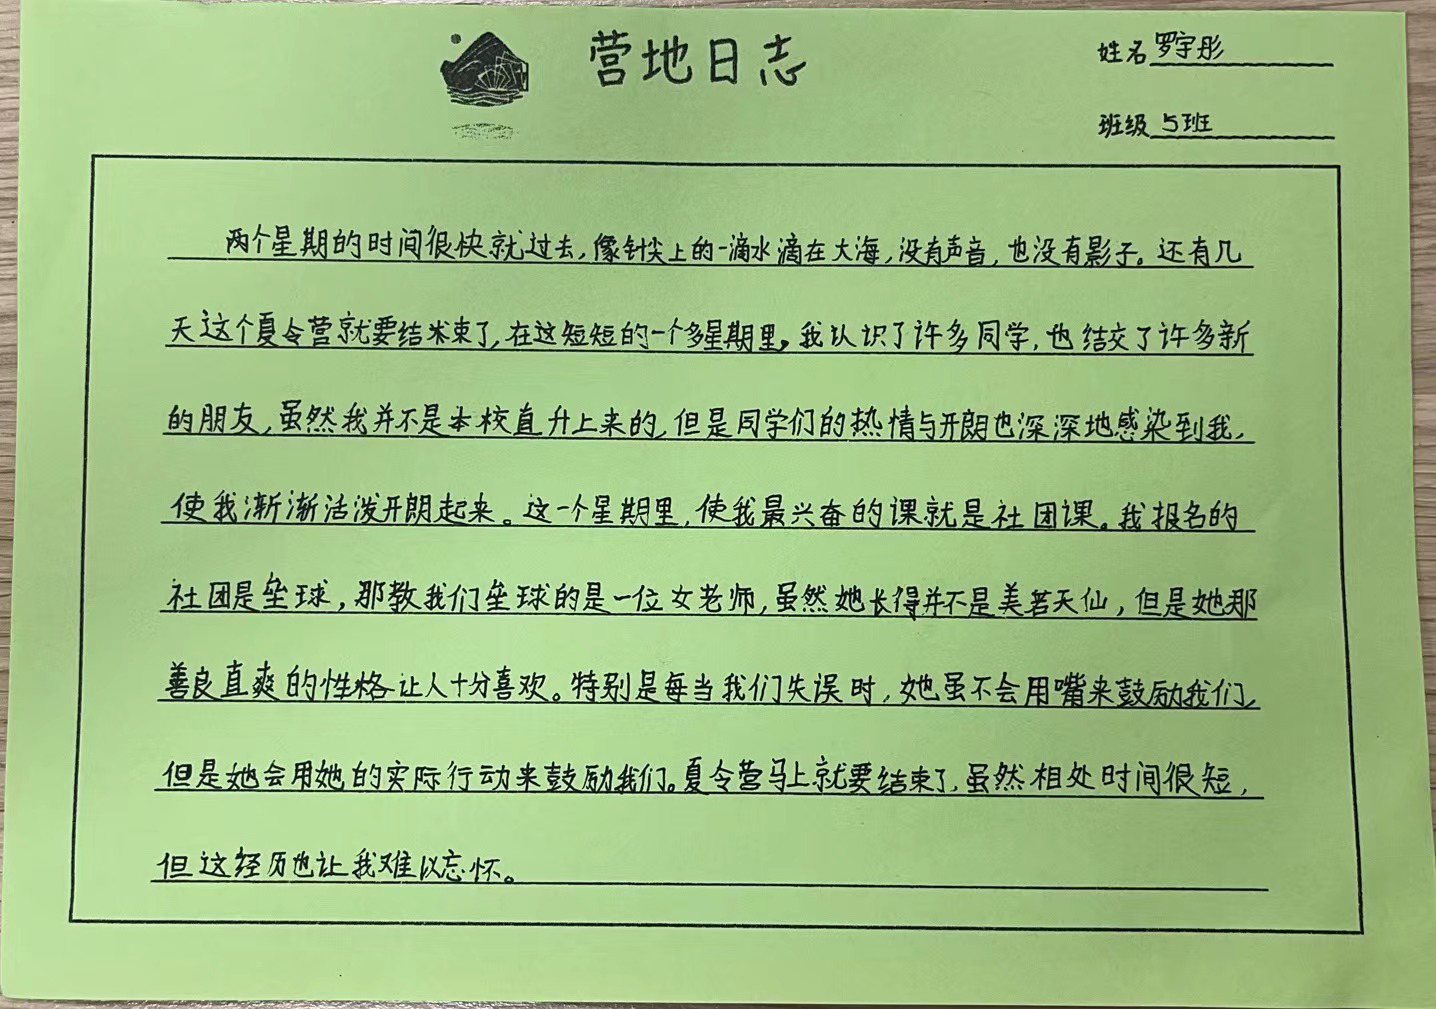 营地日志
姓名 罗宇彤
班级 5班
两个星期的时间很快就过去,像针尖上的一滴水滴在大海,没有声音,也没有影子。还有几
天这个夏令营就要结束了,在这短短的一个多星期里,我认识了许多同学,也结交了许多新
的朋友,虽然我并不是本校直升上来的,但是同学们的热情与开朗也深深地感染到我,
使我渐渐活泼开朗起来。这一个星期里,使我最兴奋的课就是社团课。我报名的
社团是垒球,那教我们垒球的是一位女老师,虽然她长得并不是美若天仙,但是她那
善良直爽的性格让人十分喜欢。特别是每当我们失误时,她虽不会用嘴来鼓励我们,
但是她会用她的实际行动来鼓励我们。夏令营马上就要结束了,虽然相处时间很短,
但这经历也让我难以忘怀。